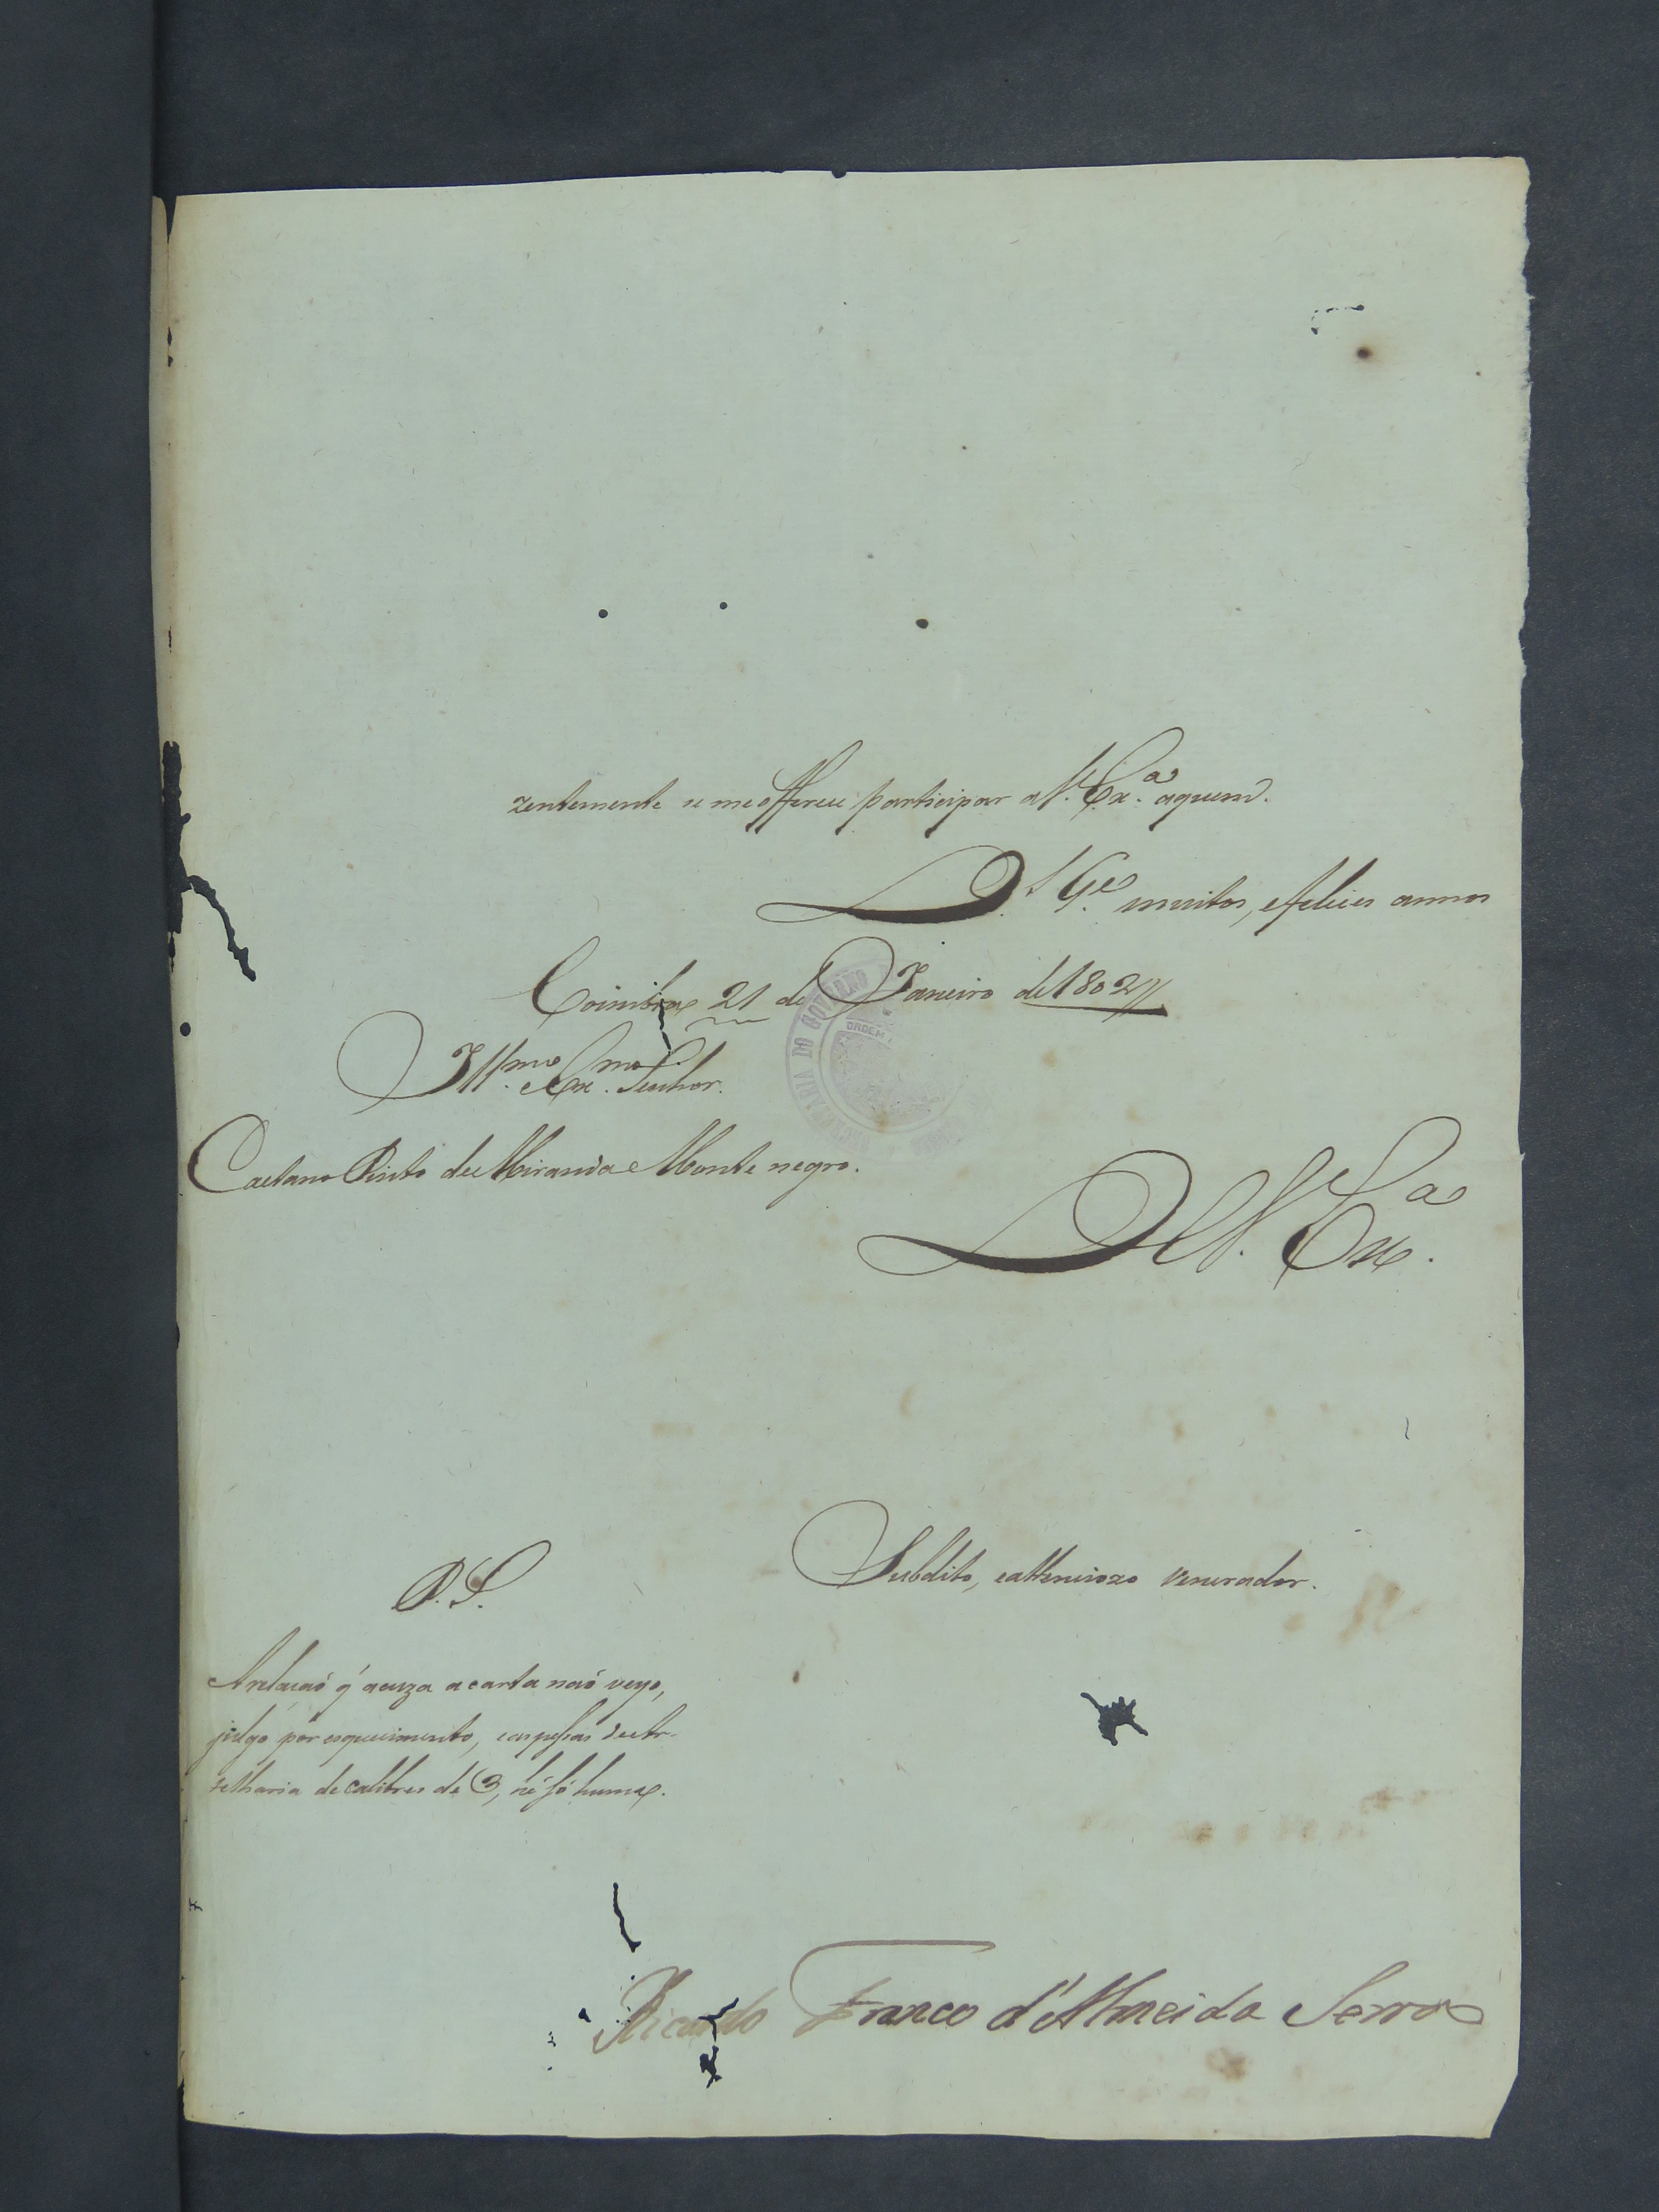 zentemente se me offerece participar a V. Ex.ª a quem.
D.s G.e muitos, e felices annos
Coimbra 21 de Janeiro de 1802//
Ill.mo e Ex.mo Senhor.
Caetano Pinto de Miranda Monte negro.
De V. Ex.ª
Subdito, e attenciozo venerador.
P.S.
A relacaõ q' acuza a carta naõ veyo,
julgo por esquecimento, e as pessas de Ar-
telharia de calibres de 3, hé só huma.
Ricardo Franco d'Almeida Serra
DO GOVERNO
ORDEM